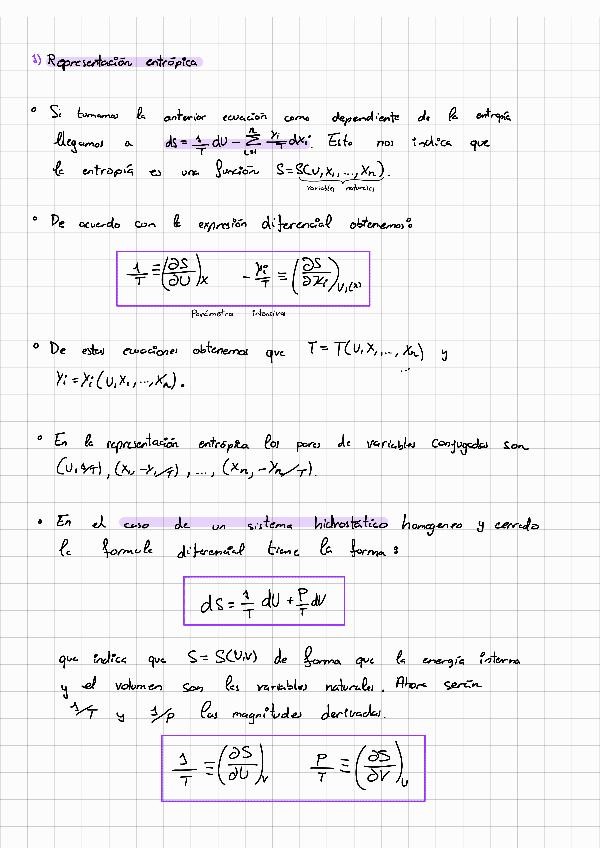 1) Representación entrópica
• Si tomamos la anterior ecuación como dependiente de la entropía
llegamos a dS = 1/T dU - Σ_{i=1}^{n} Yi/T dXi. Esto nos indica que
la entropía es una función S = S(U, X1, ..., Xn).
variables naturales
• De acuerdo con la expresión diferencial obtenemos:
1/T ≡ (∂S/∂U)_X   - Yi/T ≡ (∂S/∂Xi)_{U,(X)}
Parámetros intensivos
• De estas ecuaciones obtenemos que T = T(U, X1, ..., Xn) y
Yi = Yi(U, X1, ..., Xn).
• En la representación entrópica los pares de variables conjugadas son
(U, 1/T), (X1, -Y1/T), ..., (Xn, -Yn/T).
• En el caso de un sistema hidrostático homogeneo y cerrado
la formula diferencial tiene la forma:
dS = 1/T dU + P/T dV
que indica que S = S(U,V) de forma que la energía interna
y el volumen son las variables naturales. Ahora serán
1/T y 1/p las magnitudes derivadas.
1/T ≡ (∂S/∂U)_V   P/T ≡ (∂S/∂V)_U